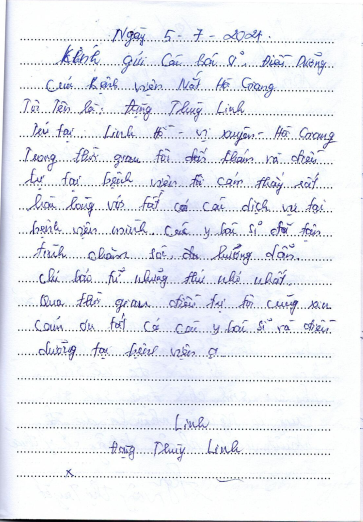 Ngày 5-7-2024.
Kính gửi Các bác sĩ, Điều Dưỡng
Của Bệnh viện Mắt Hà Giang
Tôi Tên là: Đặng Thùy Linh
Trú tại Linh Hồ - Vị Xuyên - Hà Giang
Trong thời gian tôi đến khám và điều
trị tại bệnh viện tôi cảm thấy rất
hài lòng với tất cả các dịch vụ tại
bệnh viện mình các y bác sĩ đã tận
tình chăm sóc, hướng dẫn.
chỉ bảo từ những thứ nhỏ nhất
Qua thời gian điều trị tôi cũng xin
cảm ơn tất cả các y bác sĩ và điều
dưỡng tại bệnh viện ạ
Linh
Đặng Thùy Linh
x